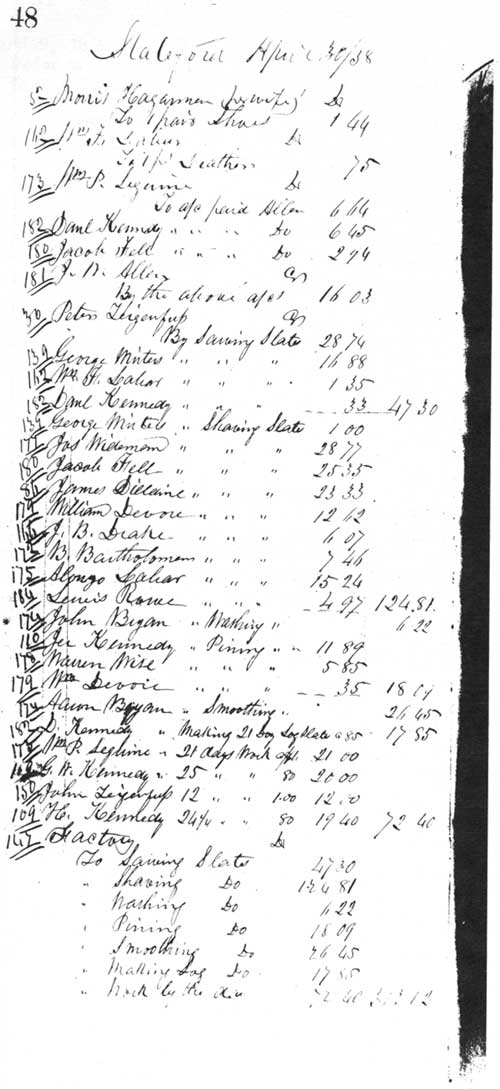 48
Slateford April 30/58
Morris Hagarman (by wife) Dr
To 1 pair Shoes 1 44
Wm F. Labar Dr
To 1 ps Leather 75
173 Wm R. Seguine Dr
To a/c paid Allen 6 64
182 Danl Kennedy " " " Do 6 45
180 Jacob Fell " " " Do 2 94
181 J. W. Allen Cr
By the above a/cs 16 03
Peter Zeigenfus Cr
By Sawing Slate 28 74
139 George Winters " " " 16 88
Wm F. Labar " " " 1 35
182 Danl Kennedy " " " 33 47 30
139 George Winters " Shaving Slate 1 00
Jos Wideman " " " 28 77
180 Jacob Fell " " " 25 35
James Dildine " " " 23 33
William Devore " " " 12 62
J. B. Drake " " " 6 07
B. Bartholomew " " " 7 46
175 Alonzo Labar " " " 15 24
Lewis Rowe " " " 4 97 124.81
John Bryan " Washing " 6 22
Jer Kennedy " Pining " " 11 89
Warren Wise " " " 5 85
179 Wm Devore " " " 35 18 09
174 Aaron Bryan " Smoothing " 26 45
182 D. Kennedy " Making 21 Sqs Slate a 85 17 85
Wm R. Seguine " 21 days Work a 1. 21 00
G. W. Kennedy " 25 " " 80 20 00
150 John Zeigenfus 12 " " 1.00 12 00
109 H. Kennedy 24¼ " " 80 19 40 72 40
Factory Dr
To Sawing Slate 47 30
" Shaving Do 124 81
" Washing Do 6 22
" Pining Do 18 09
" Smoothing Do 26 45
" Making Do 17 85
" Work by the day 72 40 313 12